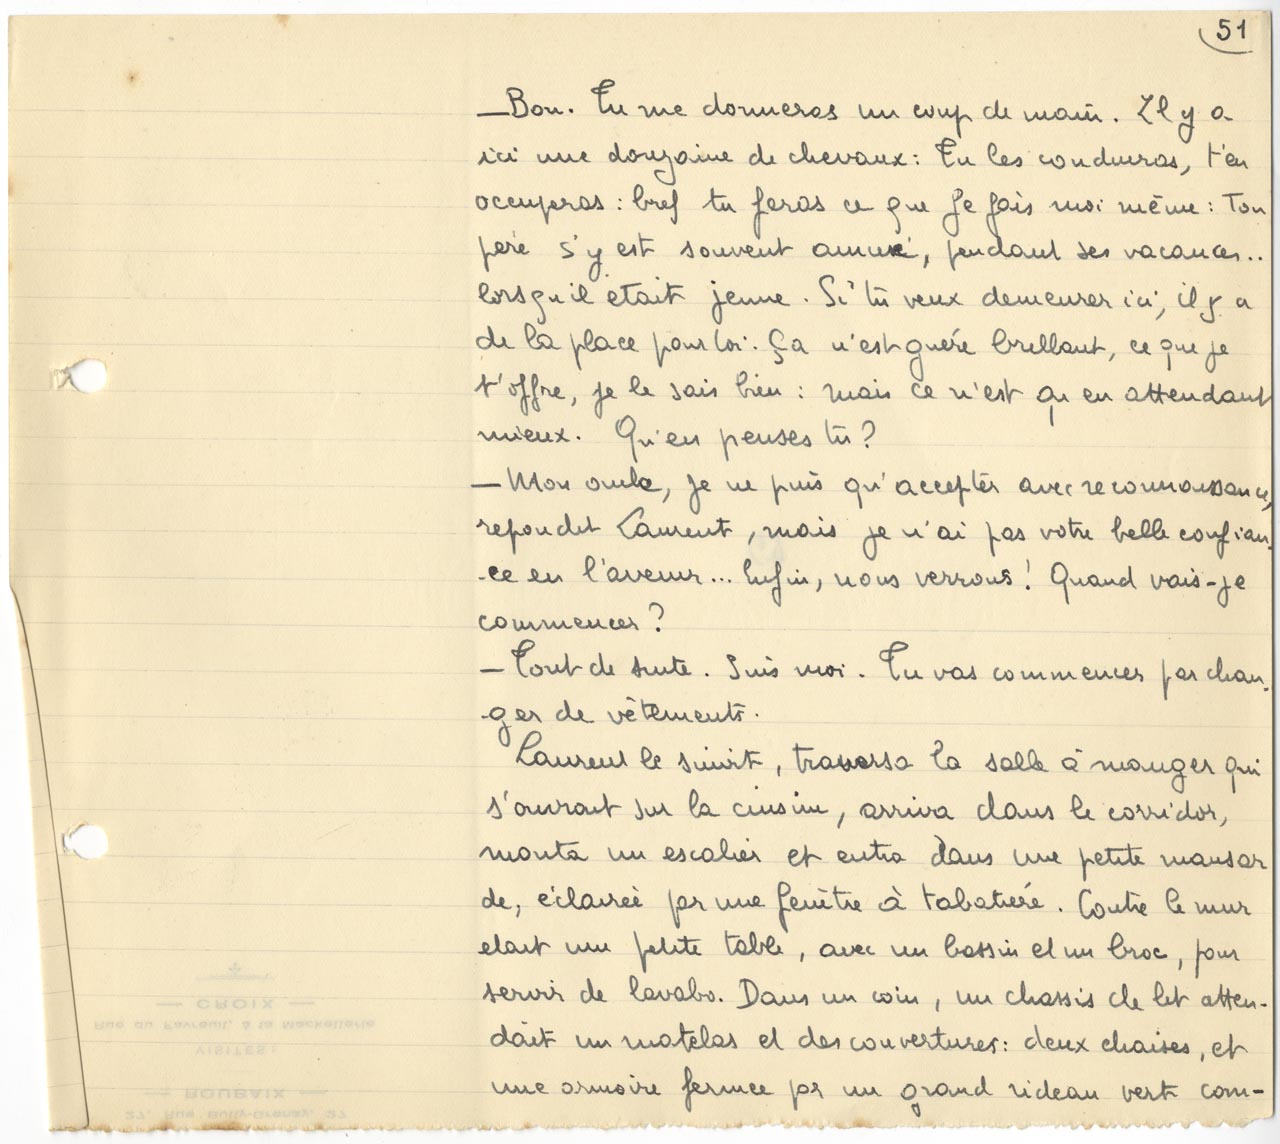 51
—Bon. Tu me donneras un coup de main. Il y a
ici une douzaine de chevaux: Tu les conduiras, t'en
occuperas: bref tu feras ce que je fais moi même: Ton
père s'y est souvent amusé, pendant ses vacances..
lorsqu'il était jeune. Si tu veux demeurer ici, il y a
de la place pour toi. Ça n'est guère brillant, ce que je
t'offre, je le sais bien: mais ce n'est qu'en attendant
mieux. Qu'en penses tu?
—Mon oncle, je ne puis qu'accepter avec reconnaissance,
repondit Laurent, mais je n'ai pas votre belle confian-
-ce en l'avenir... Enfin, nous verrons! Quand vais-je
commencer?
—Tout de suite. Suis moi. Tu vas commencer par chan-
-ger de vêtements.
Laurent le suivit, traversa la salle à manger qui
s'ouvrait sur la cuisine, arriva dans le corridor,
monta un escalier et entra dans une petite mansar
de, éclairée par une fenêtre à tabatière. Contre le mur
etait une petite table, avec un bassin et un broc, pour
servir de lavabo. Dans un coin, un chassis de lit atten-
dait un matelas et des couvertures: deux chaises, et
une armoire fermée par un grand rideau vert com-
CROIX
Rue du Favreuil, à la Mackellerie
VISITES:
ROUBAIX
27, Rue Bully-Grenay, 27